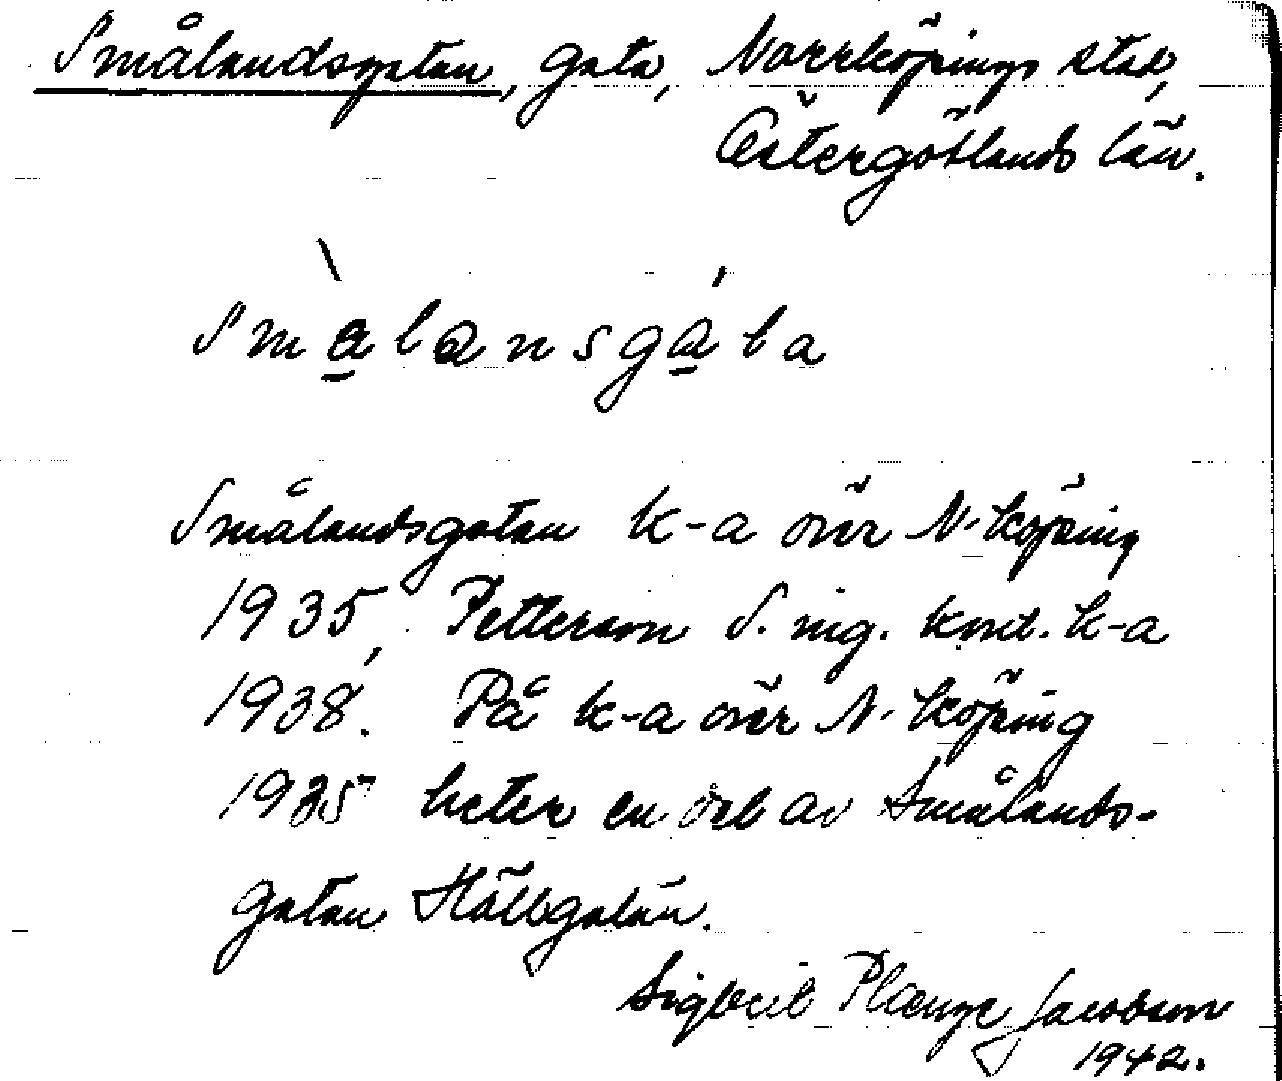 Smålandsgatan, gata, Norrköpings stad,
Östergötlands län.
Småla nsgáta
Smålandsgatan k-a över N-köping
1935, Petterson S. ing. kond. k-a
1938. På k-a över N-köping
1935 heter en del av Smålands-
gatan Hällbgatan.
Plænge Jacobson
1942.